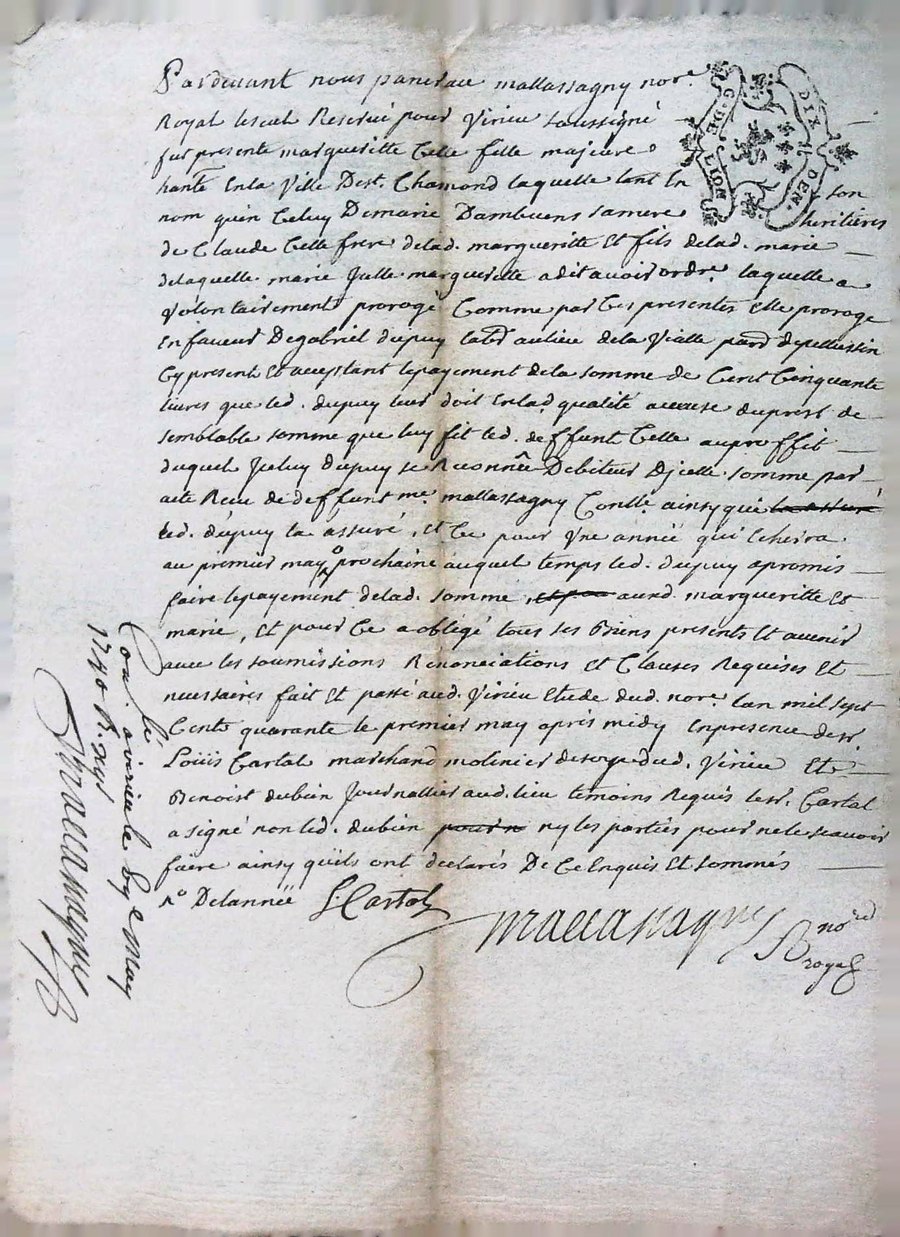 Pardevant nous pancrace mallassagny nore.
Royal lescel Reservé pour Virieu soussigné
fut presente margueritte Celle fille majeure
hante En la Ville De st. Chamond laquelle tant En son
nom qu'en Celuy De marie Dambuens sa mere heritieres
de Claude Celle frere de lad. margueritte Et fils de lad. marie
de laquelle marie Jcelle margueritte a dit avoir ordre laquelle a
Volontairement prorogé Comme par Ces presentes Elle proroge
En faveur De gabriel dupuy labr au lieu de la Vialle parr de pellussin
Cy present Et acceptant le payement de la somme de Cent Cinquante
livres que led. dupuy leur doit En lad. qualité a cause du prest de
semblable somme que luy fit led. deffunt Celle au proffit
duquel Jceluy dupuy se Reconnû Debiteur D'jcelle somme par
acte Receu de deffunt me. mallassagny Contlé. ainsy que la assuré
led. dupuy la assuré, Et Ce pour Vne année qui Echeira
au premier may prochaine auquel temps led. dupuy a promis
faire le payement de lad. somme aud. margueritte Et
marie, Et pour Ce a obligé tous ses Biens presents Et avenir
avec les soumissions Renonciations Et Clauses Requises Et
necessaires fait Et passé aud. Virieu Etude dud. nore. lan mil sept
Cents quarante le premier may apres midy En presence de sr
Loüis Cartal marchand molinier de soye dud. Virieu Et
Benoist dubien Journallier aud. lieu temoins Requis le sr. Cartal
a signé non led. dubien pour n ny les parties pour ne le scavoir
faire ainsy qu'ils ont declarés De Ce Enquis Et sommés
De lannée L. Cartal
mallassagny nore
royal
Conlé. a virieu le by e may
1740 R.
mallassagny
G. DE LION
DIX DEN.